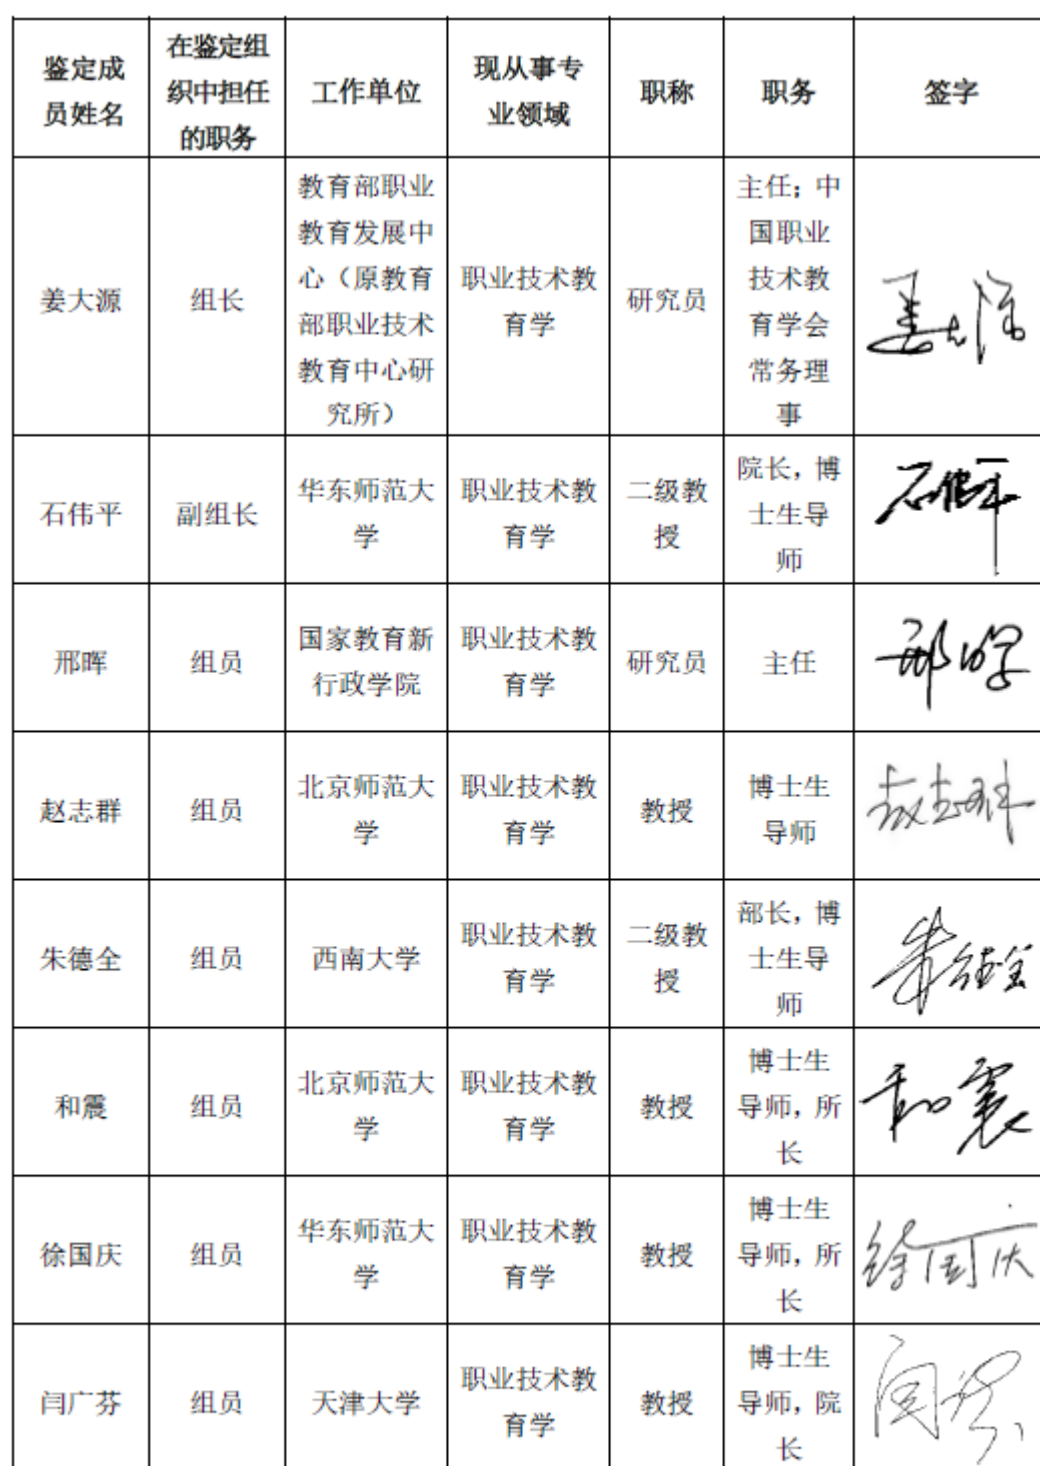 鉴定成
员姓名
在鉴定组
织中担任
的职务
工作单位
现从事专
业领域
职称
职务
签字
姜大源
组长
教育部职业
教育发展中
心（原教育
部职业技术
教育中心研
究所）
职业技术教
育学
研究员
主任；中
国职业
技术教
育学会
常务理
事
姜大源
石伟平
副组长
华东师范大
学
职业技术教
育学
二级教
授
院长，博
士生导
师
石伟平
邢晖
组员
国家教育新
行政学院
职业技术教
育学
研究员
主任
邢晖
赵志群
组员
北京师范大
学
职业技术教
育学
教授
博士生
导师
赵志群
朱德全
组员
西南大学
职业技术教
育学
二级教
授
部长，博
士生导
师
朱德全
和震
组员
北京师范大
学
职业技术教
育学
教授
博士生
导师，所
长
和震
徐国庆
组员
华东师范大
学
职业技术教
育学
教授
博士生
导师，所
长
徐国庆
闫广芬
组员
天津大学
职业技术教
育学
教授
博士生
导师，院
长